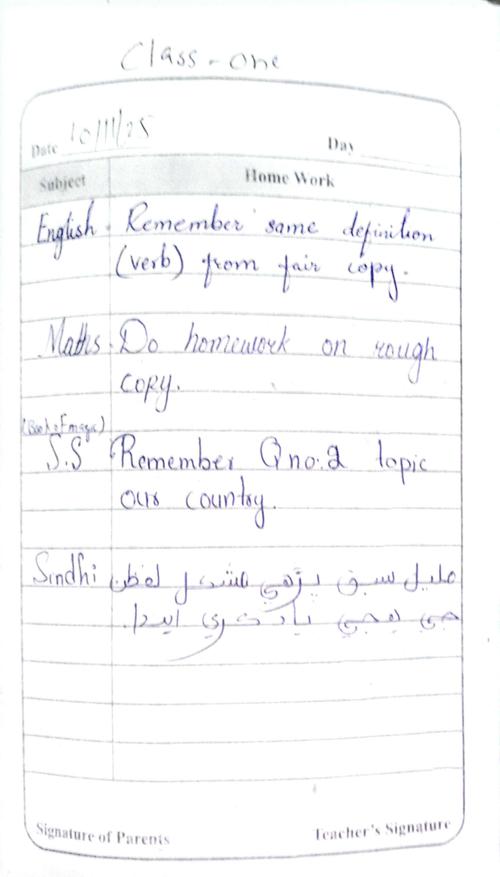 Class - one
Date 10/11/25 Day
Subject Home Work
English. Remember same definition
(verb) from fair copy.
Maths. Do homework on rough
copy.
(Book of maga)
S.S Remember Q no. 2 topic
our country.
Sindhi مليل سبق پڙهي مشڪل لفظن
جي هجي ياد ڪري ايندا.
Signature of Parents Teacher's Signature